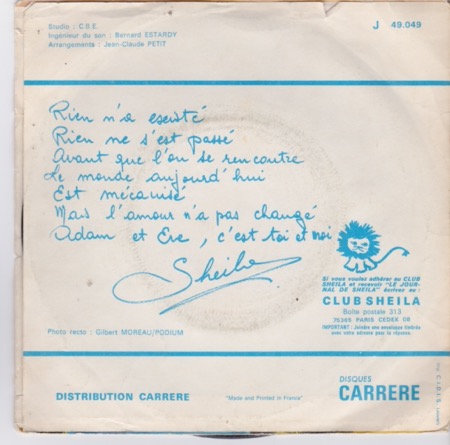 Studio : C.B.E.
Ingénieur du son : Bernard ESTARDY
Arrangements : Jean-Claude PETIT
J 49.049
Rien n'a existé
Rien ne s'est passé
Avant que l'on se rencontre
Le monde aujourd'hui
Est mécanisé
Mais l'amour n'a pas changé
Adam et Eve, c'est toi et moi
Sheila
Si vous voulez adhérer au CLUB
SHEILA et recevoir "LE JOUR-
NAL DE SHEILA" écrivez au :
CLUB SHEILA
Boîte postale 313
75365 PARIS CEDEX 08
IMPORTANT : Joindre une enveloppe timbrée
avec votre adresse pour la réponse.
Photo recto : Gilbert MOREAU/PODIUM
DISTRIBUTION CARRERE
"Made and Printed in France"
DISQUES
CARRERE